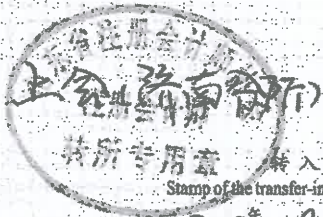 注册会计师
上会(济南分所)
转所专用章
转入
Stamp of the transfer-in